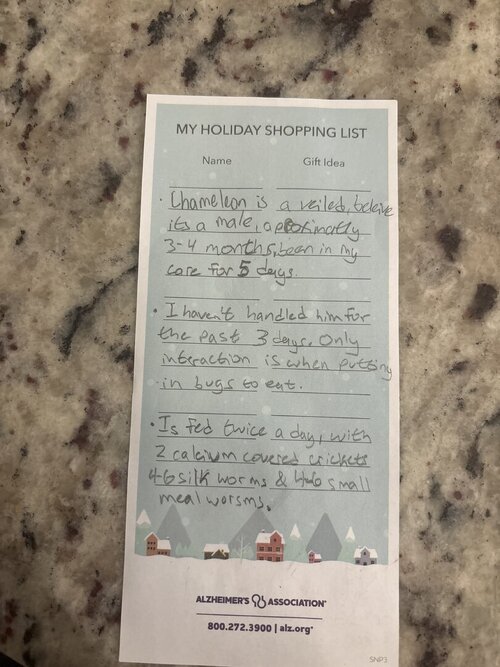 MY HOLIDAY SHOPPING LIST
Name Gift Idea
· Chameleon is a veiled, beleive
its a male, approximatly
3-4 months, been in my
care for 5 days.
· I haven't handled him for
the past 3 days. Only
interaction is when putting
in bugs to eat.
· Is fed twice a day, with
2 calcium covered crickets
4-6 silk worms & 4-6 small
meal worsms.
ALZHEIMER'S ASSOCIATION®
800.272.3900 | alz.org®
SNP3